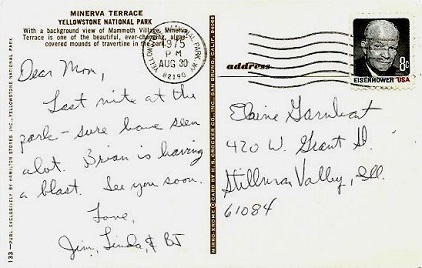 MINERVA TERRACE
YELLOWSTONE NATIONAL PARK
With a background view of Mammoth Village, Minerva
Terrace is one of the beautiful, ever-changing, algae-
covered mounds of travertine in the park.
Dear Mom,
Last nite at the
park - sure have seen
alot. Brian is having
a blast. See you soon.
Love,
Jim, Linda, & BJ
133 — PUBL. EXCLUSIVELY BY HAMILTON STORES INC., YELLOWSTONE PARK
MIRRO-KROME CARD BY H. S. CROCKER CO., INC., SAN BRUNO, CALIF.
YELLOWSTONE NATIONAL PARK, WY
1975
PM
AUG 30
82190
address
EISENHOWER·USA
8c
Elaine
420 W. Grant St.
Stillman Valley, Ill.
61084